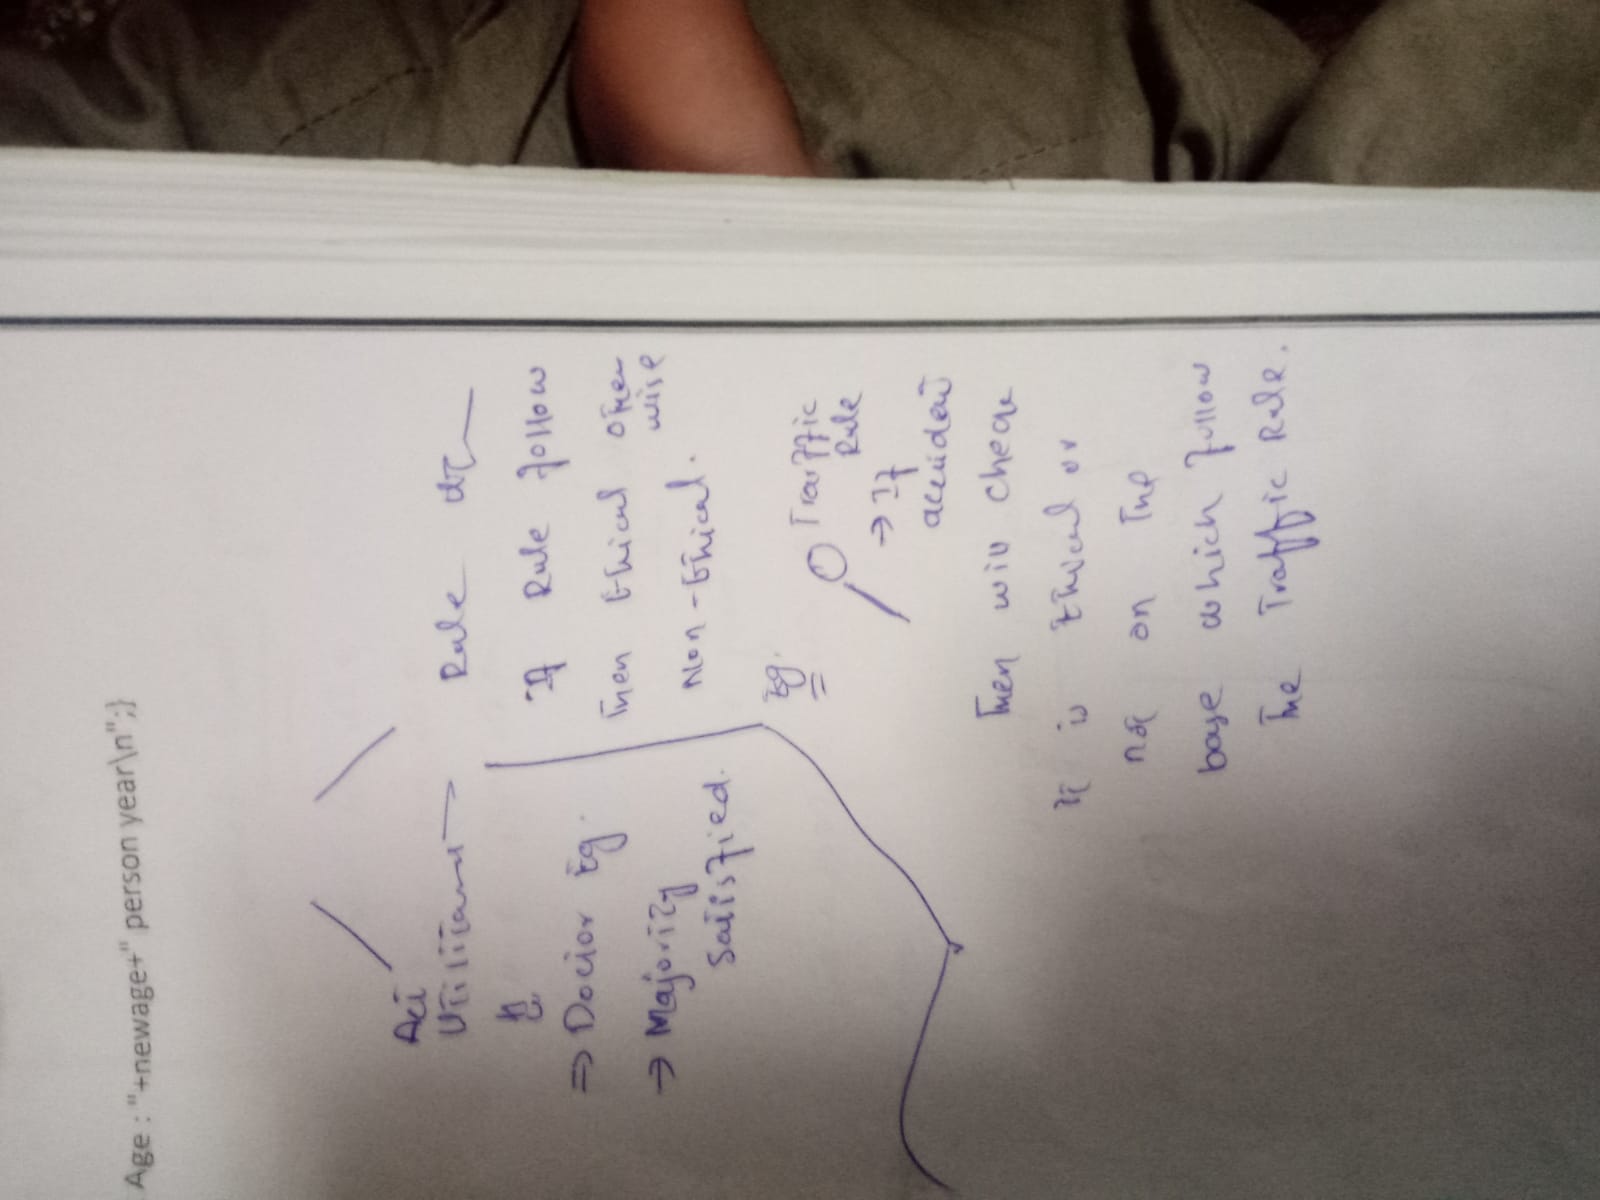 Age : "+newage+" person year\n";}
Act
Utilitarn
Eg
⇒ Doctor Eg.
→ Majority
Satisfied.
Rule ut
If Rule follow
Then Ethical other
wise
Non-Ethical.
Eg.
Traffic
Rule
→ If
accident
Then will check
It is Ethical or
not on The
base which follow
The Traffic Rule.